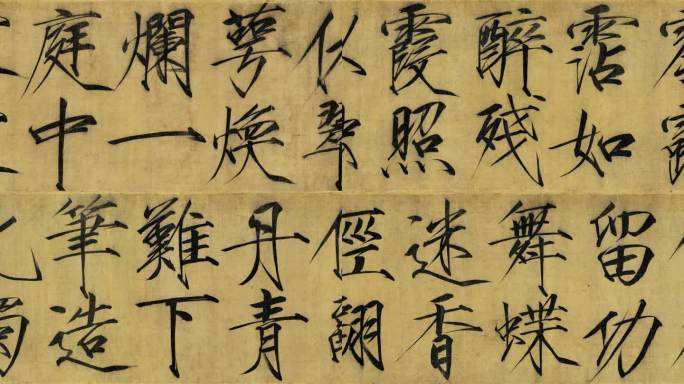 霑如
醉殘
霞照
翠
萼煥
爛一
庭中
留功
舞蝶
迷香
俓翩
丹青
難下
筆造